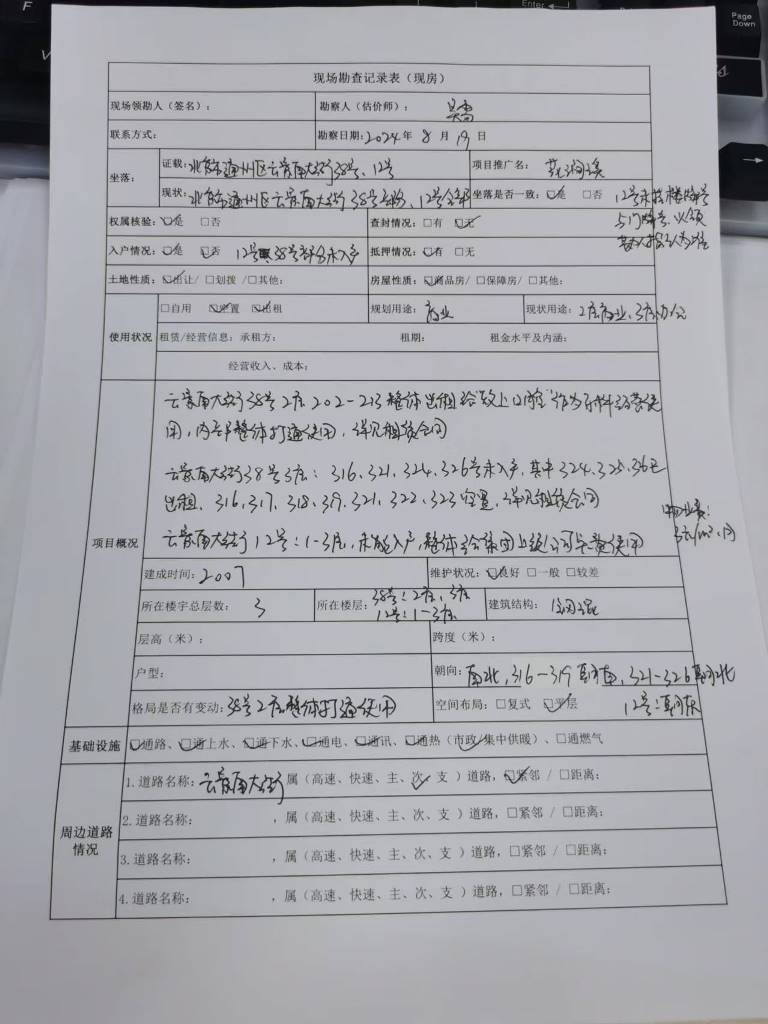 F
Enter
Page
Down
现场勘查记录表（现房）
现场领勘人（签名）：
勘察人（估价师）：
联系方式：
勘察日期：2024年 8 月 19 日
坐落：
证载：北京市通州区云景南大街38号、12号
项目推广名：
现状：北京市通州区云景南大街38号 、12号
坐落是否一致：☑是 □否
12号未挂楼牌号
权属核验：☑是 □否
查封情况：□有 ☑无
入户情况：☑是 ☑否 12号 38号部分未入户
抵押情况：☑有 □无
土地性质：☑出让/ □划拨 /□其他：
房屋性质：☑商品房/ □保障房/ □其他：
使用状况
□自用 ☑空置 ☑出租
规划用途：商业
现状用途：2层商业、3层办公
租赁/经营信息：承租方： 租期： 租金水平及内涵：
经营收入、成本：
项目概况
云景南大街38号2层202-213整体出租给 作为 使
用，内部整体打通使用，详见租赁合同
云景南大街38号3层：316、321、324、326号未入户，其中324、325、326已
出租，316、317、318、319、321、322、323空置，详见租赁合同
云景南大街12号：1-3层，未能入户，整体 集团上级公司免费使用
物业费：
3元/m²·月
建成时间：2007
维护状况：☑良好 □一般 □较差
所在楼宇总层数： 3
所在楼层：38号：2层、3层
12号：1-3层
建筑结构：钢混
层高（米）：
跨度（米）：
户型：
朝向：南北，316-319朝南，321-326朝北
12号：朝东
格局是否有变动：38号2层整体打通使用
空间布局：□复式 ☑平层
基础设施
☑通路、☑通上水、☑通下水、☑通电、☑通讯、☑通热（市政/集中供暖）、□通燃气
周边道路
情况
1.道路名称：云景南大街 属（高速、快速、主、次✓、支 ）道路，☑紧邻 / □距离：
2.道路名称： ，属（高速、快速、主、次、支 ）道路，□紧邻 / □距离：
3.道路名称： ，属（高速、快速、主、次、支 ）道路，□紧邻 / □距离：
4.道路名称： ，属（高速、快速、主、次、支 ）道路，□紧邻 / □距离：